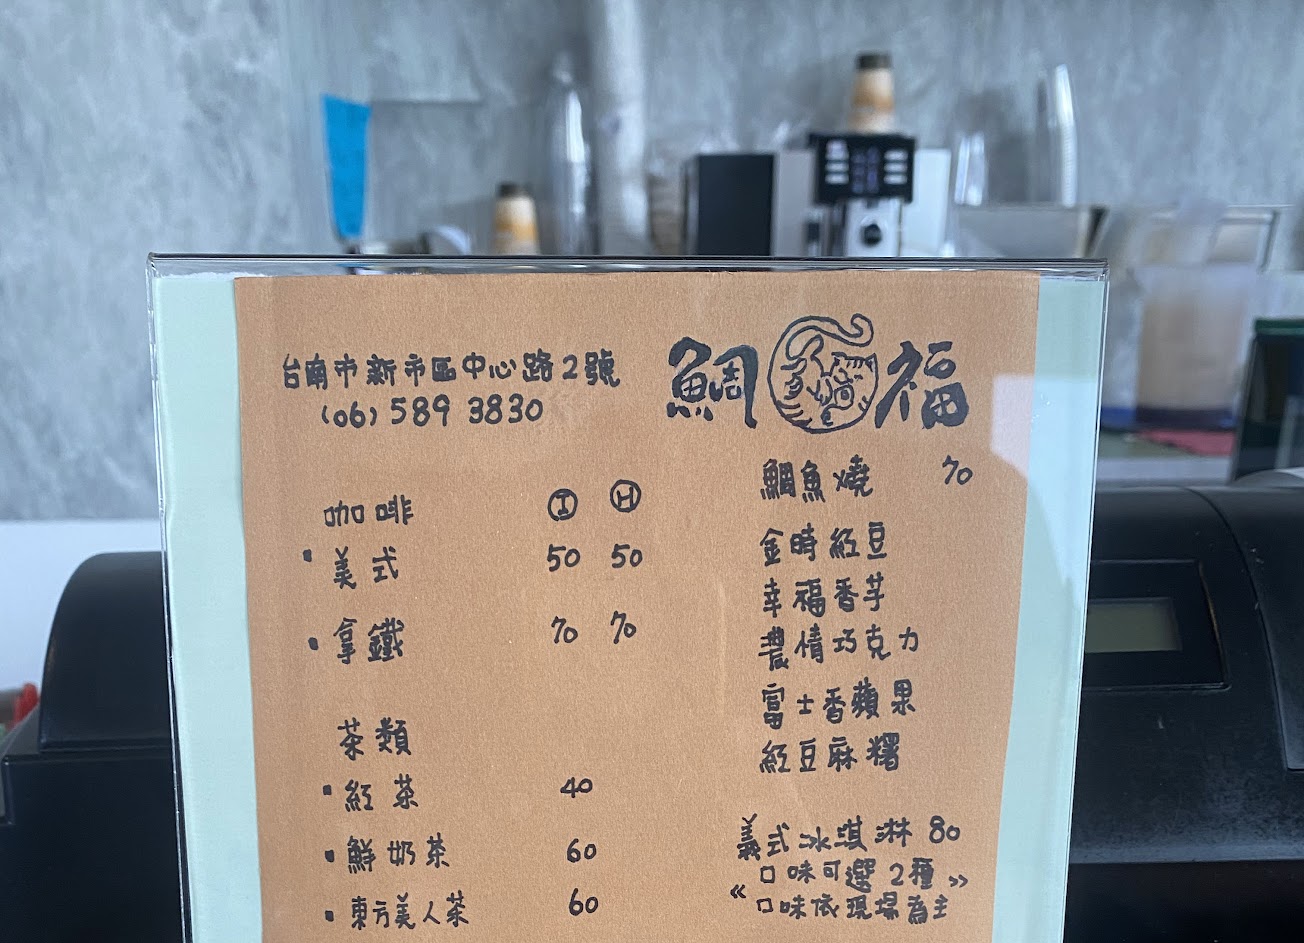 台南市新市區中心路2號
(06) 589 3830
鯛福
咖啡 I H
・美式 50 50
・拿鐵 70 70
茶類
・紅茶 40
・鮮奶茶 60
・東方美人茶 60
鯛魚燒 70
金時紅豆
幸福香芋
濃情巧克力
富士香蘋果
紅豆麻糬
義式冰淇淋 80
《口味可選2種
口味依現場為主》